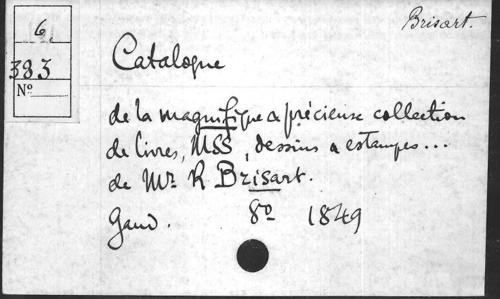 Brisart.
6.
383
N°
Catalogue
de la magnifique & précieuse collection
de livres, MSS, dessins & estampes...
de Mr. R Brisart.
Gand. 8o 1849